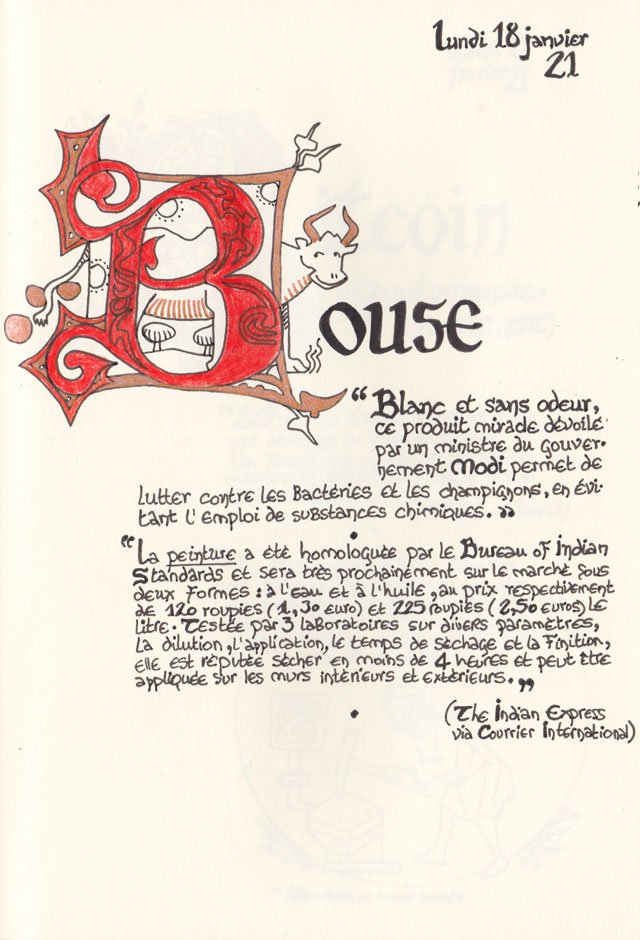 Lundi 18 janvier
21
Bouse
“Blanc et sans odeur,
ce produit miracle dévoilé
par un ministre du gouver-
nement Modi permet de
lutter contre les bactéries et les champignons, en évi-
tant l'emploi de substances chimiques.”
“La peinture a été homologuée par le Bureau of Indian
Standards et sera très prochainement sur le marché sous
deux formes : à l'eau et à l'huile, au prix respectivement
de 120 roupies (1,30 euro) et 225 roupies (2,50 euros) le
litre. Testée par 3 laboratoires sur divers paramètres,
la dilution, l'application, le temps de séchage et la finition,
elle est réputée sécher en moins de 4 heures et peut être
appliquée sur les murs intérieurs et extérieurs.”
(The Indian Express
via Courrier International)